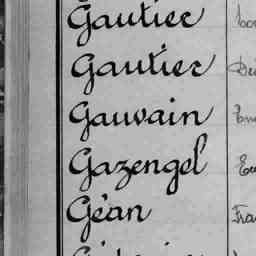 Gautier
Gautier
Gauvain
Gazengel
Géan